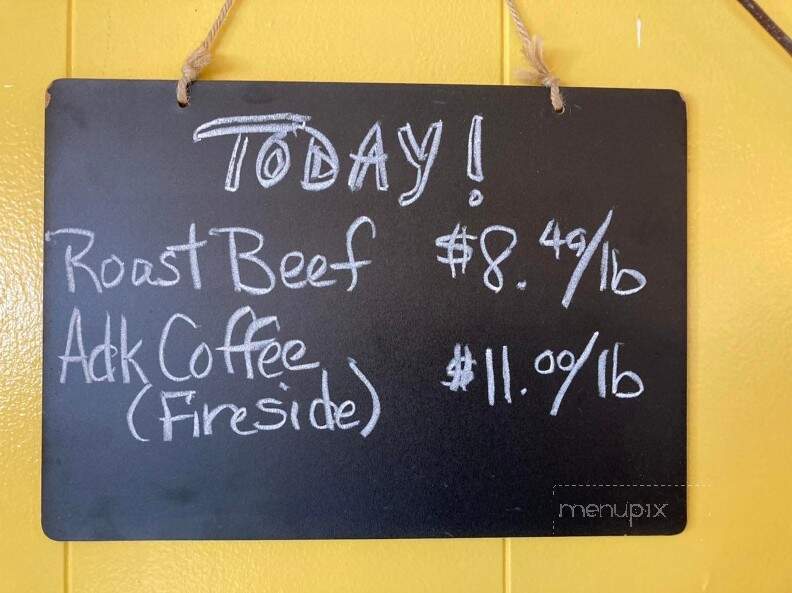 TODAY!
Roast Beef $8.49/lb
Adk Coffee $11.00/lb
(Fireside)
menupix